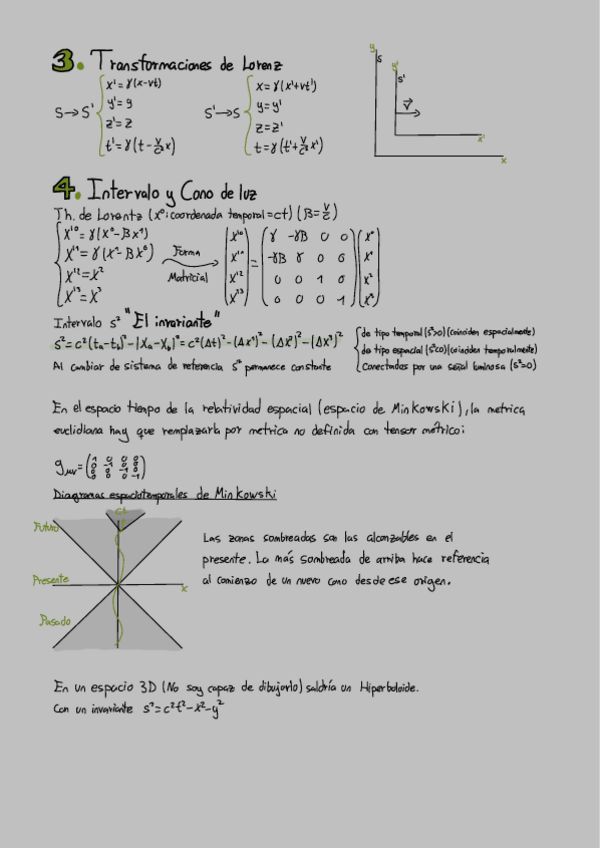 3. Transformaciones de Lorenz
S→S' { x'=γ(x-vt)
y'=y
z'=z
t'=γ(t-v/c² x)
S'→S { x=γ(x'+vt')
y=y'
z=z'
t=γ(t'+v/c² x')
y
S
y'
S'
v⃗
x'
x
4. Intervalo y Cono de luz
Th. de Lorentz (x⁰: coordenada temporal=ct) (β=v/c)
x'⁰=γ(x⁰-βx¹)
x'¹=γ(x¹-βx⁰)
x'²=x²
x'³=x³
Forma
Matricial
(x'⁰) = (γ -γβ 0 0) (x⁰)
(x'¹) (-γβ γ 0 0) (x¹)
(x'²) (0 0 1 0) (x²)
(x'³) (0 0 0 1) (x³)
Intervalo s² "El invariante"
s²=c²(ta-tb)²-|Xa-Xb|²=c²(Δt)²-(Δx¹)²-(Δx²)²-(Δx³)²
de tipo temporal (s²>0)(coinciden espacialmente)
de tipo espacial (s²<0)(coinciden temporalmente)
Conectados por una señal luminosa (s²=0)
Al cambiar de sistema de referencia s² permanece constante
En el espacio tiempo de la relatividad espacial (espacio de Minkowski), la metrica
euclidiana hay que remplazarla por metrica no definida con tensor métrico:
gμν=(1 0 0 0
0 -1 0 0
0 0 -1 0
0 0 0 -1)
Diagramas espaciotemporales de Minkowski
ct
Futuro
Presente
x
Pasado
Las zonas sombreadas son las alcanzables en el
presente. La más sombreada de arriba hace referencia
al comienzo de un nuevo cono desde ese origen.
En un espacio 3D (No soy capaz de dibujarlo) saldría un Hiperboloide.
Con un invariante s²=c²t²-x²-y²